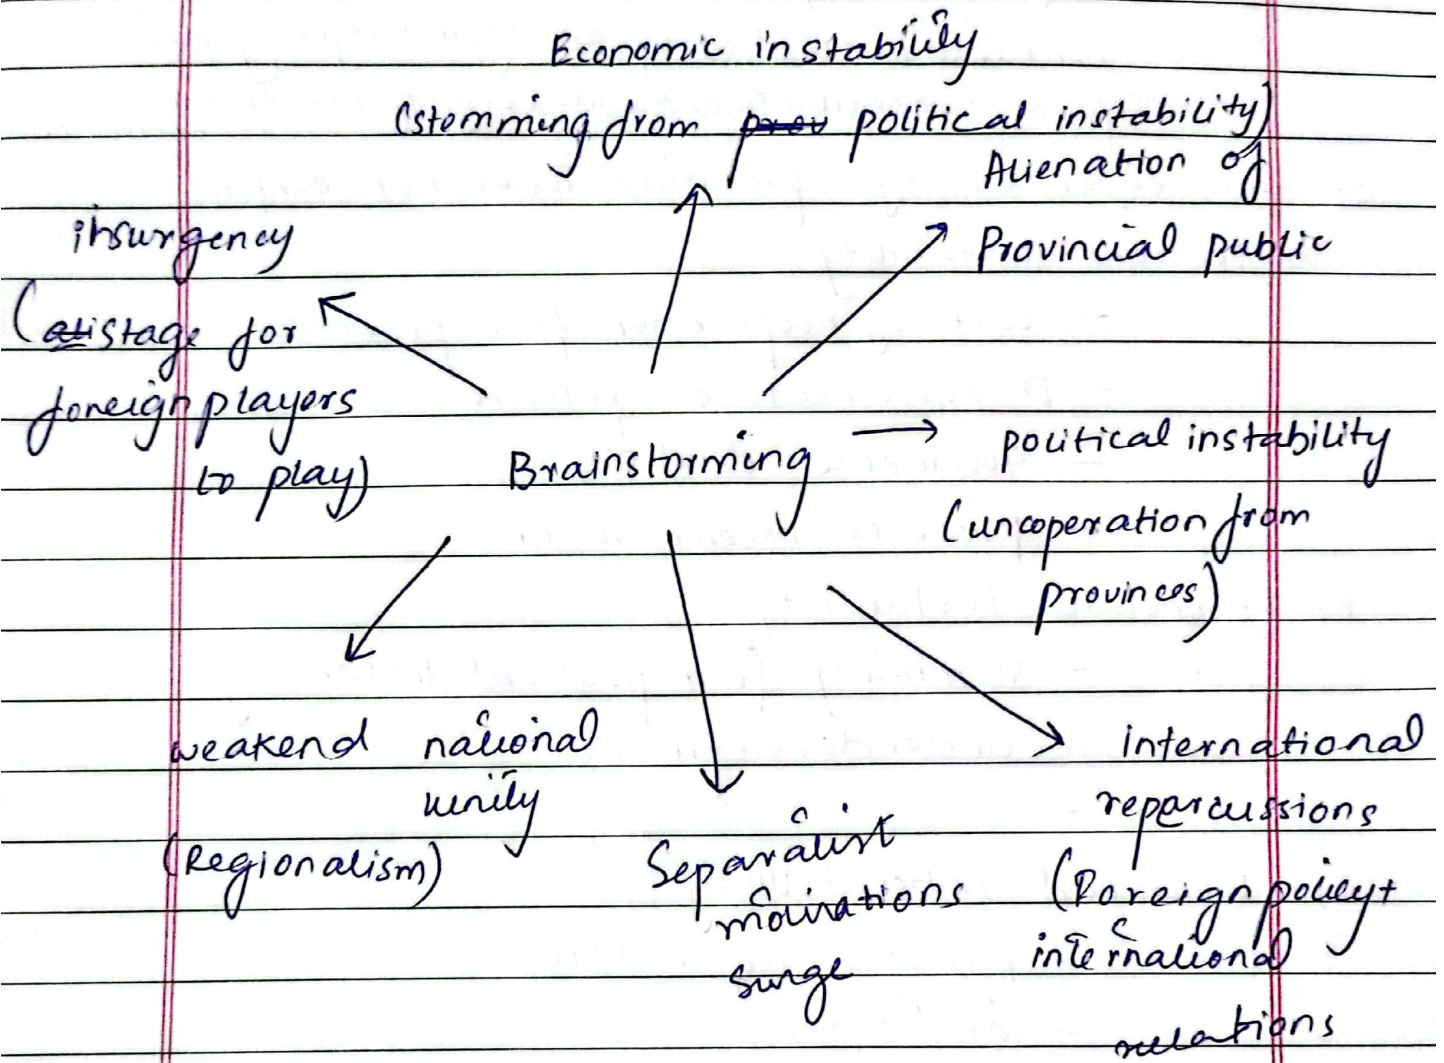 Economic instability
(stemming from prov political instability)
Alienation of
Provincial public
insurgency
(stage for
foreign players
to play)
Brainstorming
political instability
(uncoperation from
provinces)
weakend national
unity
(Regionalism)
Separatist
motivations
surge
international
repercussions
(Foreign policy+
international
relations